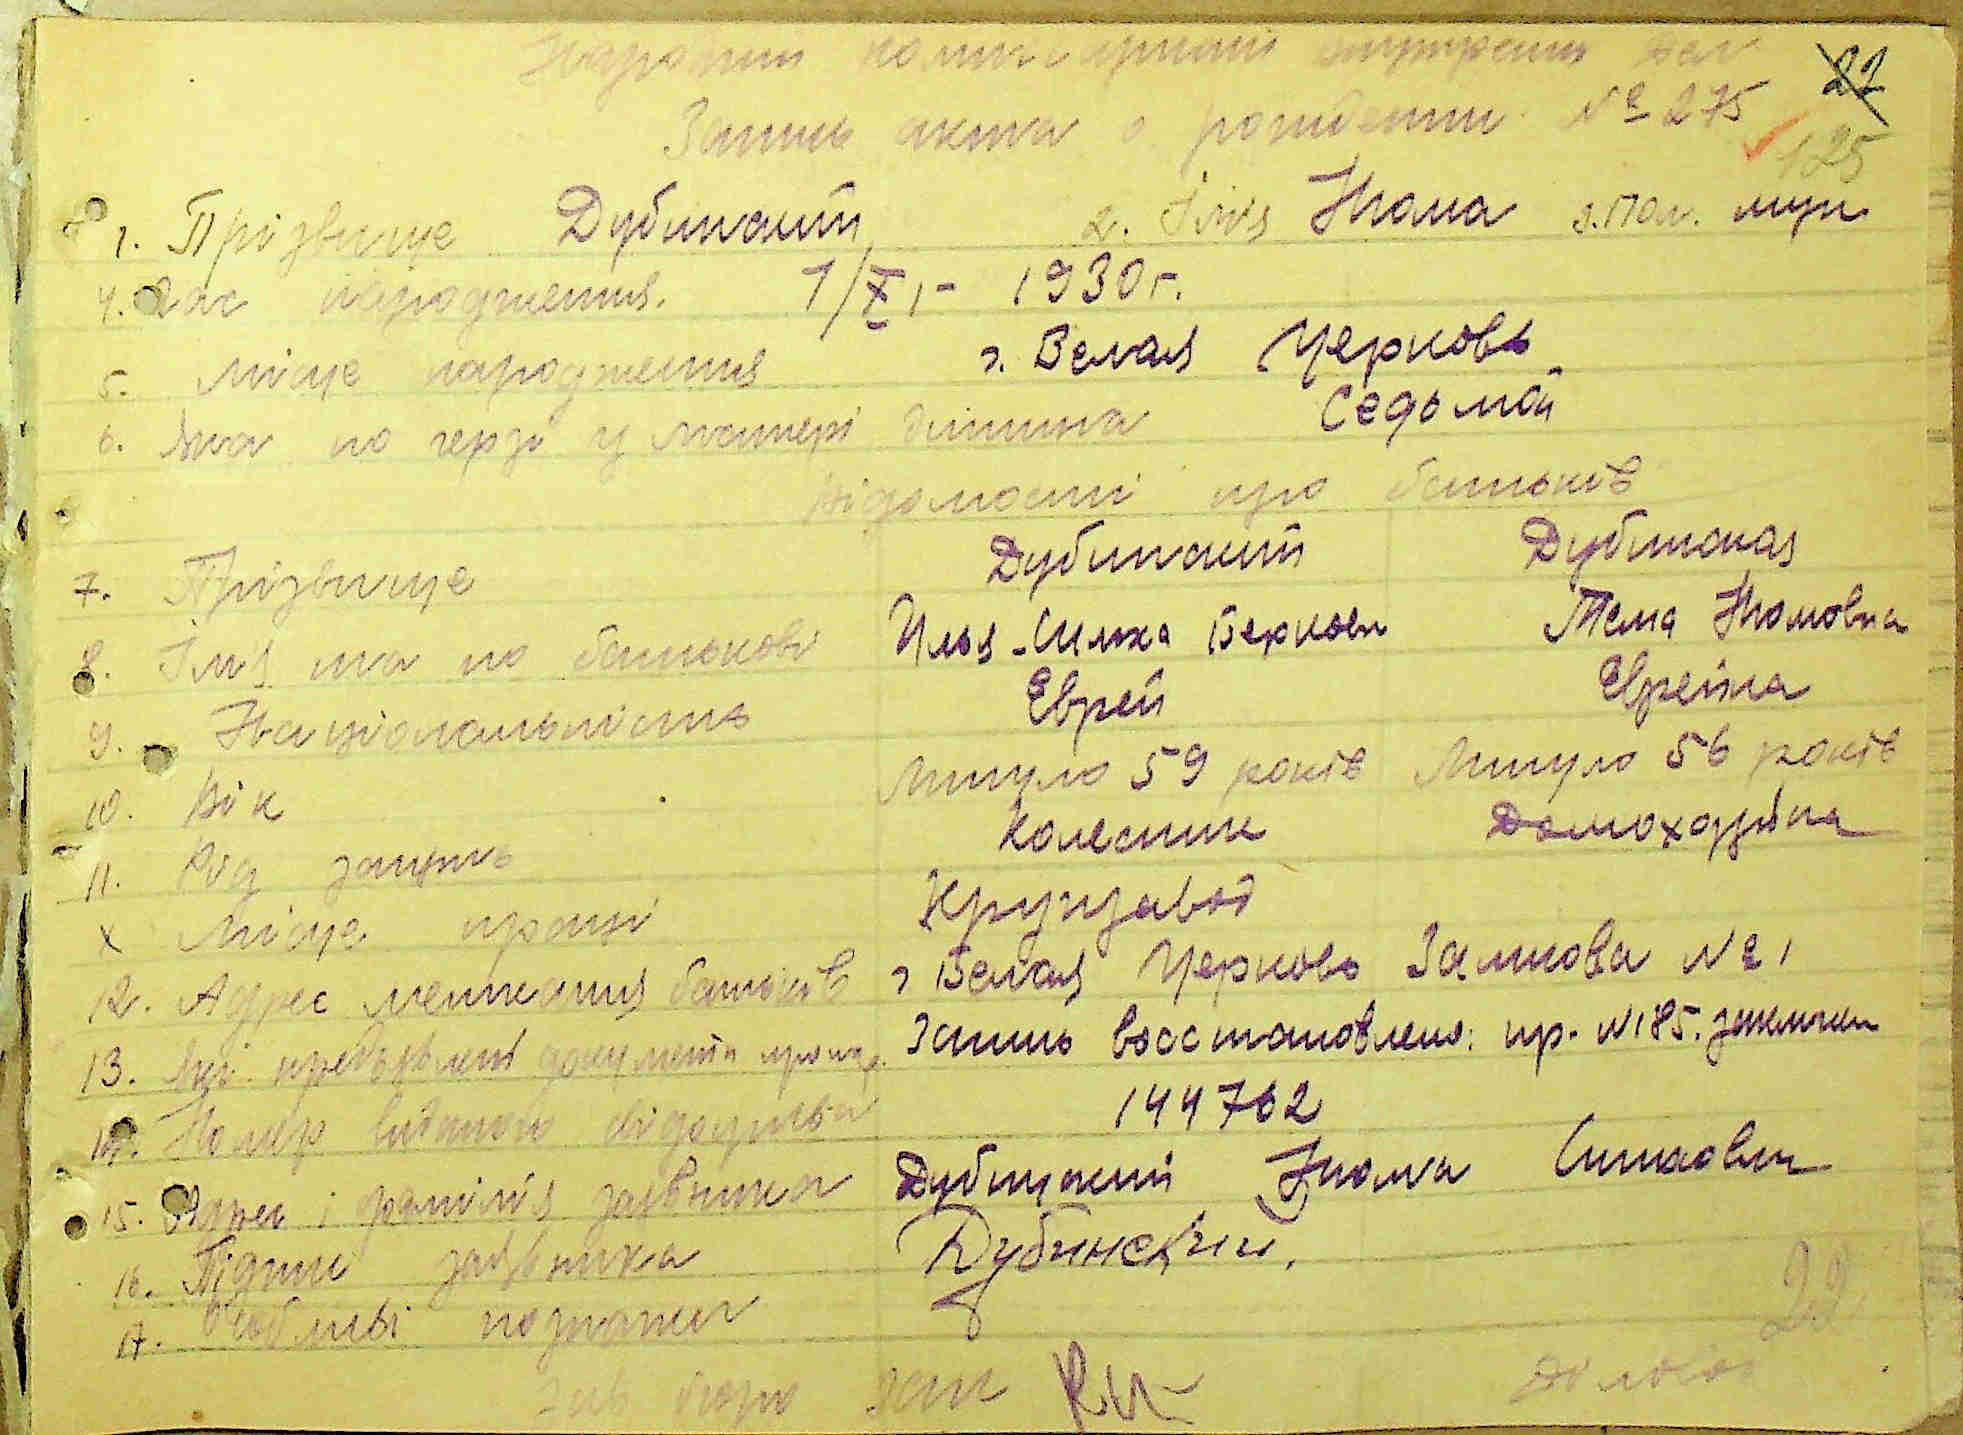 Народний комисариат внутрених дел
27
Запись акта о рождении № 275
125
1. Прізвище Дубинский 2. Імя Нюма 3. Пол. муж
4. Час народження. 7/XI - 1930 г.
5. Місце народження г. Белая Церковь
6. Яка по черзі у матері дитина Седьмой
Відомості про батьків
7. Прізвище Дубинский Дубинская
8. Імя та по батькові Илья-Симха Беркови Тема Нюмовна
9. Національність Еврей Еврейка
10. Вік Минуло 59 років Минуло 56 років
11. Род занять Колесник Домохозяйка
х Місце праці Крупзавод
12. Адрес мешкання батьків г Белая Церковь Замкова № 1
13. Які предъявлені документи Запись восстановлено: пр. N185. заключен
14. Номер виданого свідоцтва 144762
15. Адрес і фамілія заявника Дубинский Нюма Симхович
16. Підпис заявника Дубинский.
17. Особливі познаки
22
Зав бюро загс